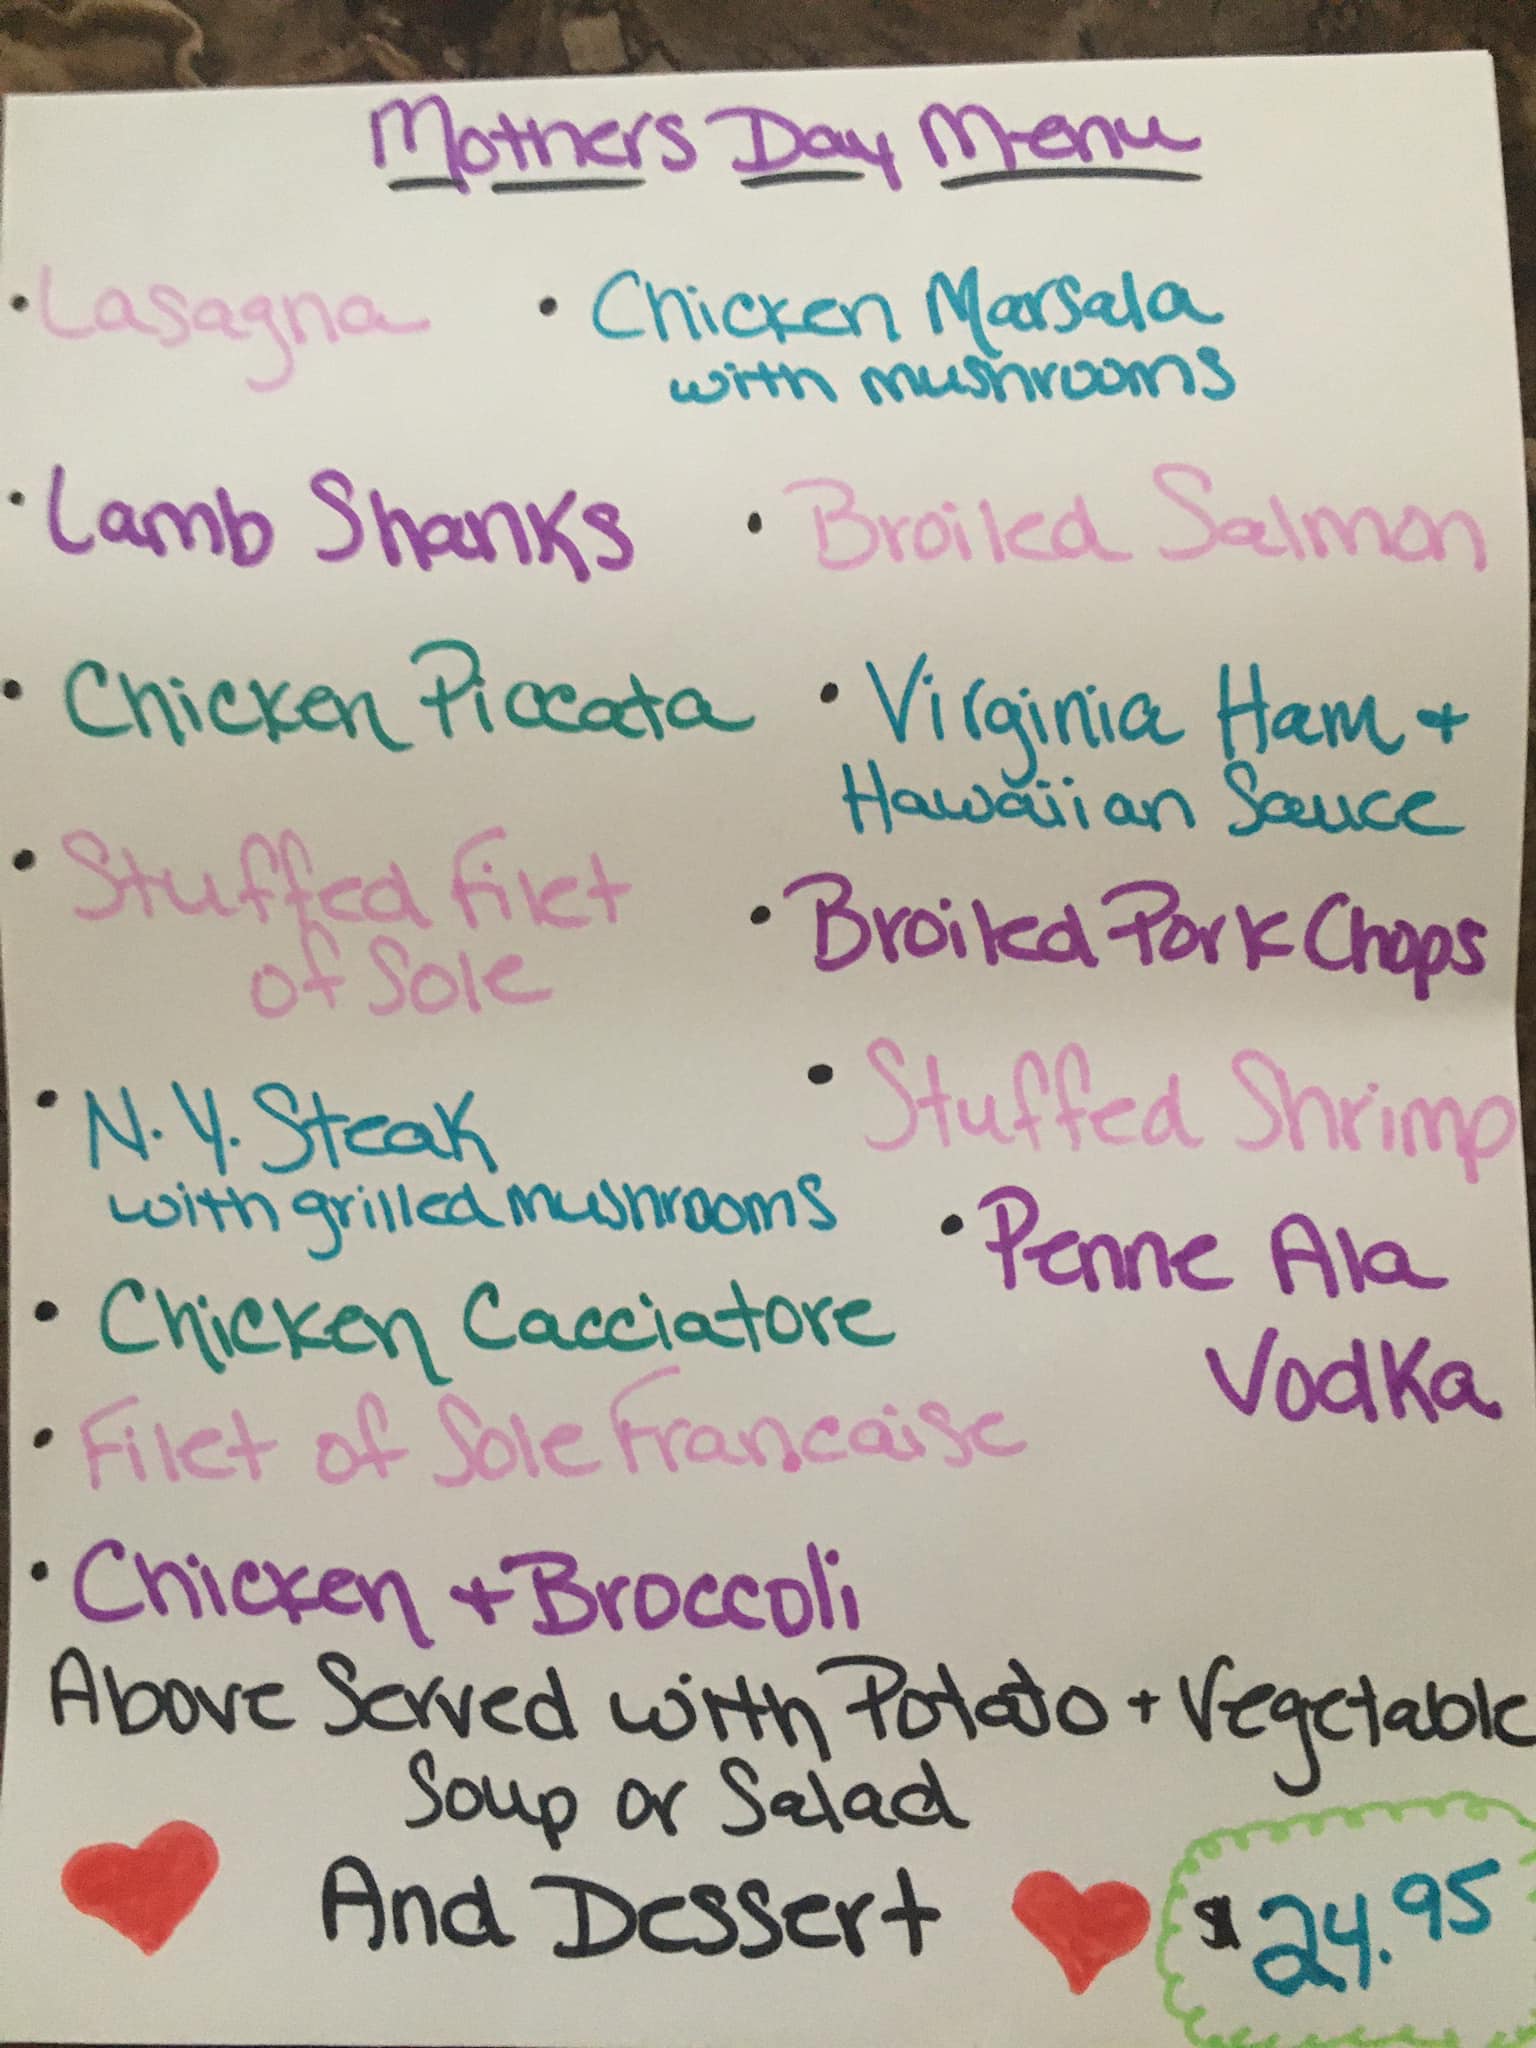 Mothers Day Menu
• Lasagna
• Chicken Marsala
with mushrooms
• Lamb Shanks
• Broiled Salmon
• Chicken Piccata
• Virginia Ham +
Hawaiian Sauce
• Stuffed Filet
of Sole
• Broiled Pork Chops
• N.Y. Steak
with grilled mushrooms
• Stuffed Shrimp
• Penne Ala
Vodka
• Chicken Cacciatore
• Filet of Sole Francaise
• Chicken + Broccoli
Above Served with Potato + Vegetable
Soup or Salad
And Dessert
$24.95